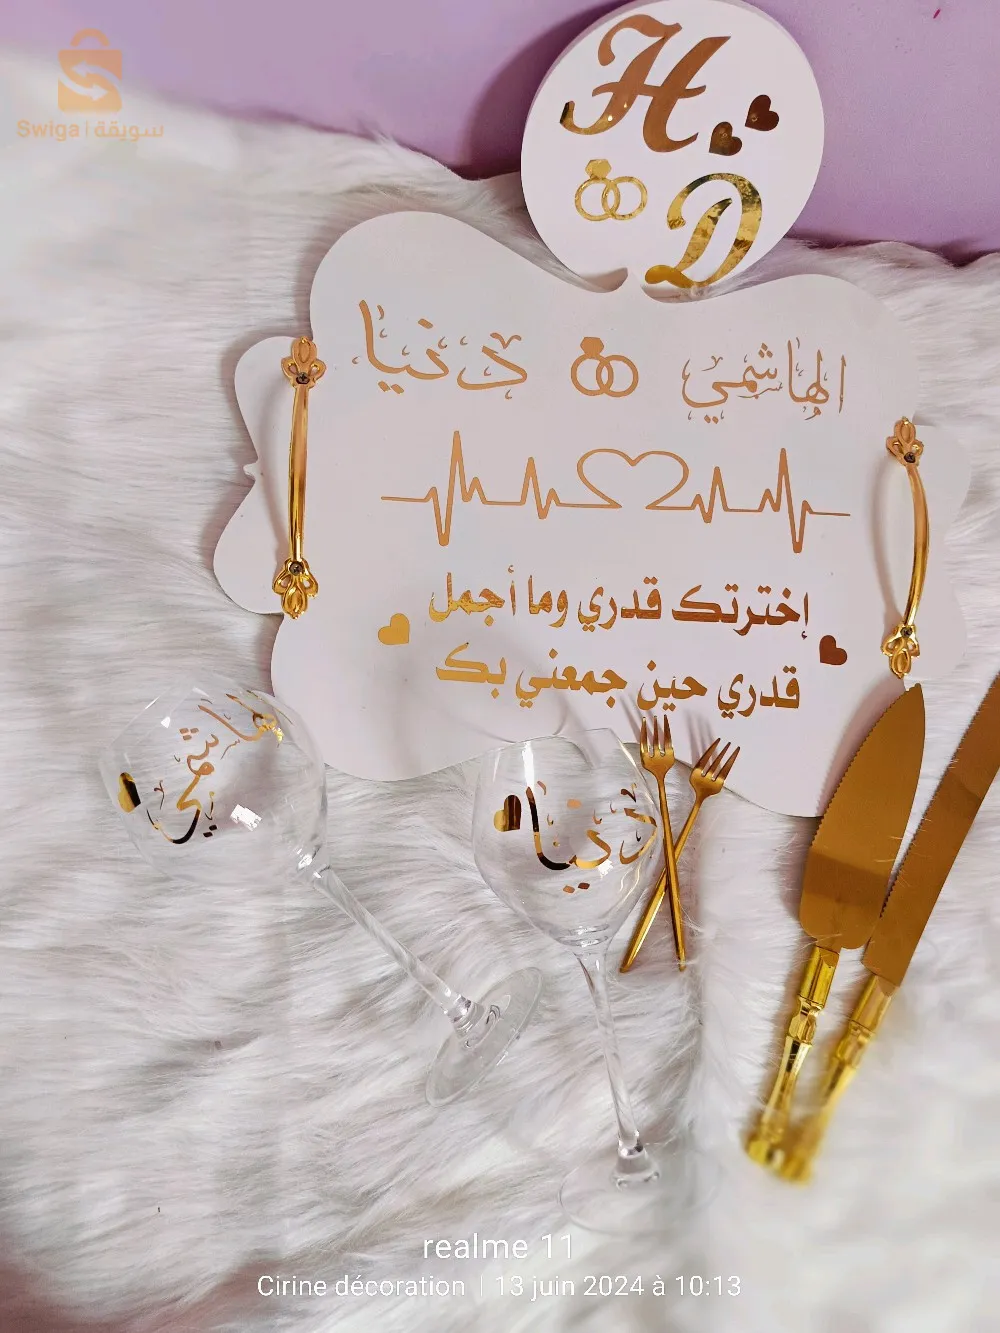 Swiga | سويقة
H
D
الهاشمي دنيا
إخترتك قدري وما أجمل
قدري حين جمعني بك
هاشمي
دنيا
realme 11
Cirine décoration | 13 juin 2024 à 10:13